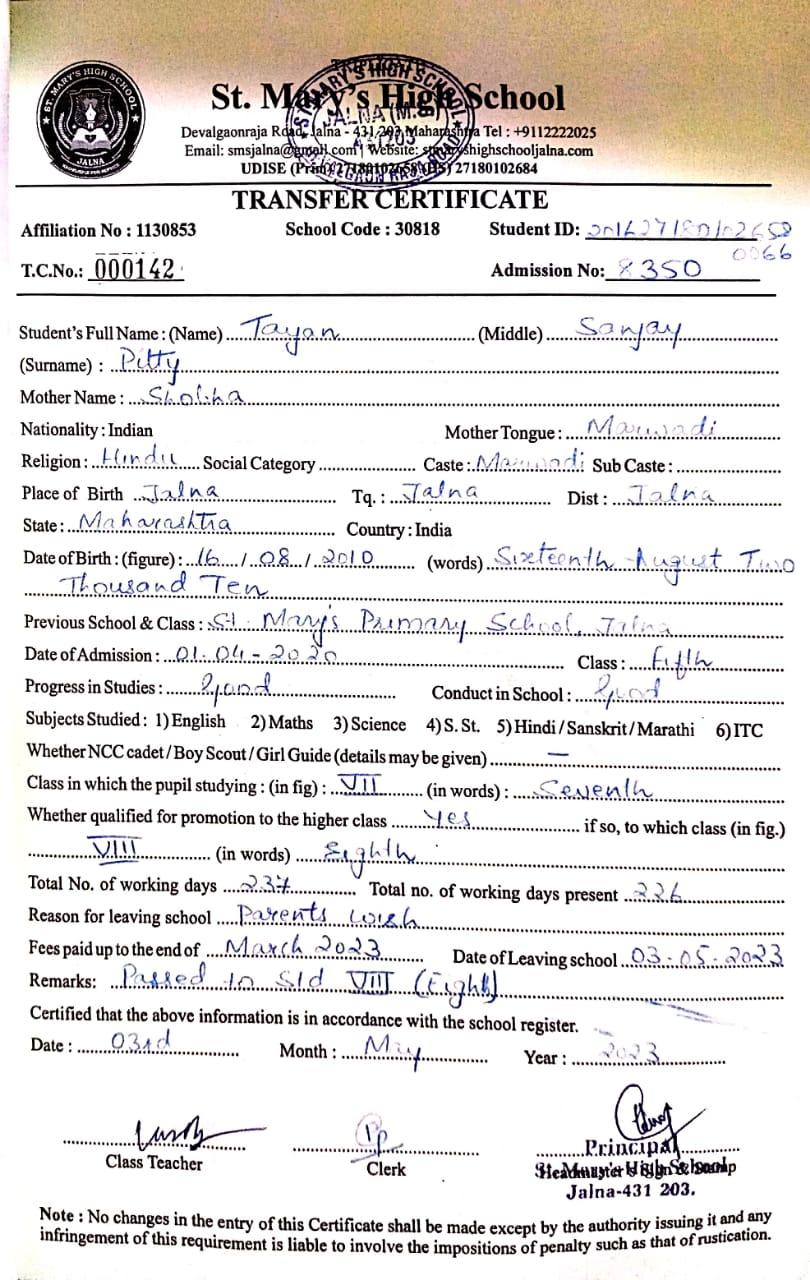 ST. MARY'S HIGH SCHOOL
JALNA
St. Mary's High School
Devalgaonraja Road, Jalna - 431 203 Maharashtra Tel : +9112222025
Email: smsjalna@gmail.com | Website: highschooljalna.com
UDISE (Prim) 27180102658 (HS) 27180102684
TRANSFER CERTIFICATE
Affiliation No : 1130853 School Code : 30818 Student ID: 201627180102658
0066
T.C.No.: 000142 Admission No: 8350
Student's Full Name : (Name) Tayan (Middle) Sanjay
(Surname) : Pitty
Mother Name : Shobha
Nationality : Indian Mother Tongue : Marwadi
Religion : Hindu Social Category Caste : Marwadi Sub Caste :
Place of Birth Jalna Tq. : Jalna Dist : Jalna
State : Maharashtra Country : India
Date of Birth : (figure) : 16 / 08 / 2010 (words) Sixteenth August Two
Thousand Ten
Previous School & Class : St. Mary's Primary School, Jalna
Date of Admission : 01-04-2020 Class : Fifth
Progress in Studies : Good Conduct in School : Good
Subjects Studied : 1) English 2) Maths 3) Science 4) S. St. 5) Hindi / Sanskrit / Marathi 6) ITC
Whether NCC cadet / Boy Scout / Girl Guide (details may be given) —
Class in which the pupil studying : (in fig) : VII (in words) : Seventh
Whether qualified for promotion to the higher class Yes if so, to which class (in fig.)
VIII (in words) Eighth
Total No. of working days 237 Total no. of working days present 226
Reason for leaving school Parents wish
Fees paid up to the end of March 2023 Date of Leaving school 03-05-2023
Remarks: Passed in Std VIII (Eighth)
Certified that the above information is in accordance with the school register.
Date : 03rd Month : May Year : 2023
Class Teacher Clerk Principal
St. Mary's High School
Headmaster's Sign & Stamp
Jalna-431 203.
Note : No changes in the entry of this Certificate shall be made except by the authority issuing it and any
infringement of this requirement is liable to involve the impositions of penalty such as that of rustication.